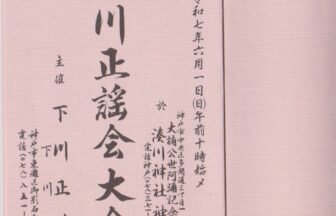 令和七年六月一日(日)午前十時始メ
神戸市中央区多聞通三丁目一
大楠公世阿彌記念
於 湊川神社神
電話神戸(〇七八)三七一
川正謡会大会
主催 下川正
下川
神戸市東灘区御影石
電話(〇七八)八五一